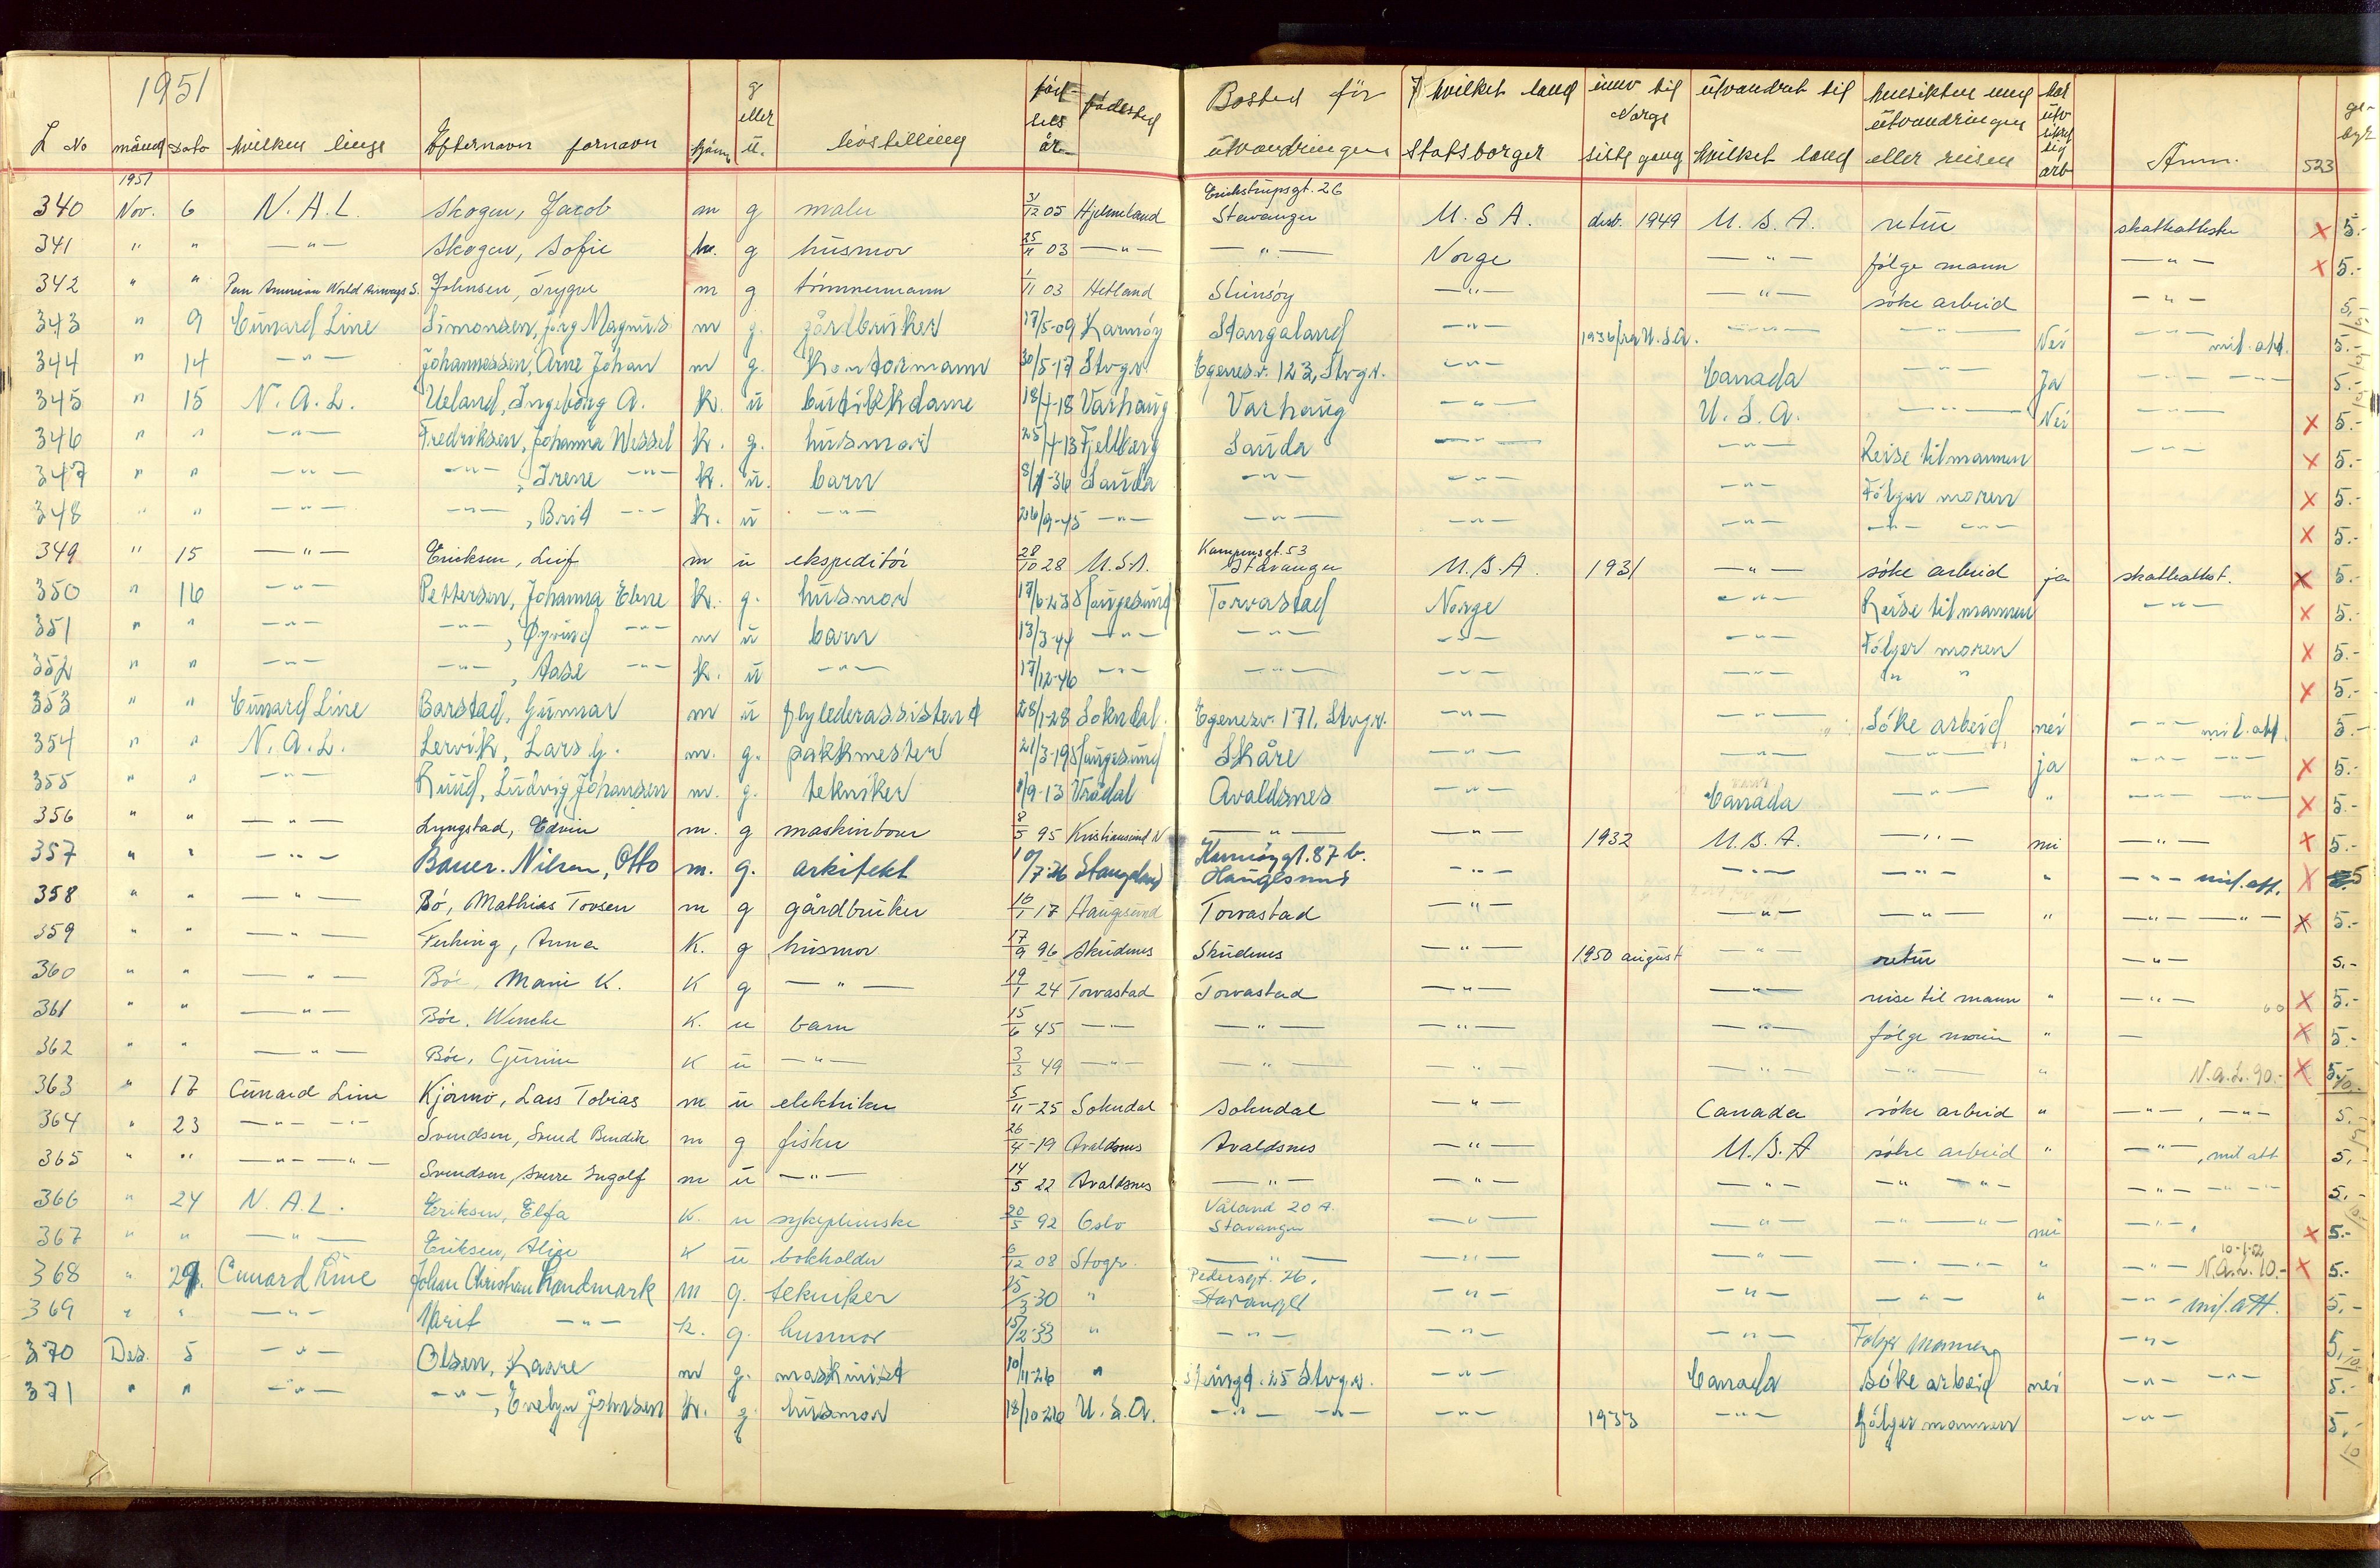 1951
L No månd Dato hvilken linje Efternavn fornavn kjønn g eller u. livstilling föd- sels år födested Bosted för utvandringen I hvilket land Statsborger innv til Norge siste gang utvandret til hvilket land hensikten med utvandringen eller reisen Anm. 523 ge- byr
340 1951 Nov. 6 N.A.L. Skogen, Jacob m g maler 3/12 05 Hjelmeland Erichstrupsgt. 26 Stavanger U.S.A. des. 1949 U.S.A. retur skatteatteste x 5.-
341 " " — " — Skogen, Sofie k. g husmor 25/11 03 — " — — " — Norge — " — følge mann — " — x 5.-
342 " " Pan American World Airways S. Johnsen, Trygve m g tömmermann 1/11 03 Hetland — " — — " — söke arbeid — " — 5.-
343 " 9 Cunard Line Simonsen, Jørg Magnus m g. gårdbruker 17/5-09 Karmøy Stangaland — " — 1936 fra U.S.A. — " — — " — Nei — " — mil. att. 5.-
344 " 14 — " — Johannessen, Arne Johan m g. Kontormann 30/5-17 Stvgr. Egenesv. 123, Stvgr. — " — Canada — " — Ja — " — — " — 5.-
345 " 15 N.A.L. Ueland, Ingeborg A. k. u butikkdame 18/4-18 Varhaug Varhaug — " — U.S.A. — " — Nei — " — x 5.-
346 " " — " — Fredriksen, Johanna Wessel k. g. husmor 25/4-13 Fjellberg Sauda — " — — " — Reise til mannen — " — x 5.-
347 " " — " — — " —, Irene — " — k. u. barn Sauda — " — — " — — " — Følger moren x 5.-
348 " " — " — — " —, Brit — " — k. u — " — 26/9-45 — " — — " — — " — — " — — " — — " — x 5.-
349 " 15 — " — Ericksen, Leif m u ekspeditör 28/10 28 U.S.A. Kampensgt. 53 Stavanger U.S.A. 1931 — " — söke arbeid ja skatteattest. x 5.-
350 " 16 — " — Pettersen, Johanna Elene k. g. husmor 17/6-23 Haugesund Torvastad Norge — " — Reise til mannen — " — x 5.-
351 " " — " — — " —, Øyvind — " — m u barn 13/3-44 — " — — " — — " — — " — Følger moren x 5.-
352 " " — " — — " —, Aase — " — k. u — " — 17/12-46 — " — — " — — " — — " — " " x 5.-
353 " " Cunard Line Barstad, Gunnar m u flylederassistent 28/1-28 Sokndal. Egenesv. 171, Stvgr. — " — — " — Söke arbeid nei — " — mil. att. 5.-
354 " " N.A.L. Lervik, Lars G. m. g. pakkmester 21/3-19 Haugesund Skåre — " — — " — — " — ja — " — — " — x 5.-
355 " " — " — Ruud, Ludvig Johansen m. g. tekniker 1/9-13 Vrådal Avaldsnes — " — Canada — " — " — " — — " — x 5.-
356 " " — " — Lyngstad, Edvin m. g maskinboer 8/5 95 Kristiansund N — " — — " — 1932 U.S.A. — " — nei — " — x 5.-
357 " " — " — Bauer-Nilsen, Otto m. g. arkitekt 10/7-26 Stangaland Karmøygt. 87 b. Haugesund — " — — " — — " — " — " — mil. att. x 5
358 " " — " — Bö, Mathias Tovsen m g gårdbruker 16/1 17 Haugesund Torvastad — " — — " — — " — " — " — — " — x 5.-
359 " " — " — Ferking, Anna K. g husmor 17/9 96 Skudenes Skudenes — " — 1950 august — " — retur — " — 5.-
360 " " — " — Böe, Marie K. K g — " — 19/1 24 Torvastad Torvastad — " — — " — reise til mann " — " — x 5.-
361 " " — " — Böe, Wenche K. u barn 15/6 45 — " — — " — — " — — " — følge moren " — x 5.-
362 " " — " — Böe, Gurine K u — " — 3/3 49 — " — — " — — " — — " — — " — " N.A.L. 90.- x 5.-
363 " 17 Cunard Line Kjørmo, Lars Tobias m u elektriker 5/11-25 Sokndal Sokndal — " — Canada söke arbeid " — " —, — " — 5.-
364 " 23 — " — — " — Svendsen, Svend Bendik m g fisker 26/4-19 Avaldsnes Avaldsnes — " — U.S.A söke arbeid " — " —, mil att 5.-
365 " " — " — — " — Svendsen, Sverre Ingolf m u — " — 14/5 22 Avaldsnes — " — — " — — " — — " — — " — — " — — " — 5.-
366 " 24 N.A.L. Eriksen, Elfa K. u sykepleierske 20/5 92 Oslo Våland 20 A. Stavanger — " — — " — — " — — " — nei — " — x 5.-
367 " " — " — Eriksen, Alice K u bokholder 6/12 08 Stvgr. — " — — " — — " — — " — " — " — N.A.L. 10.- x 5.-
368 " 29. Cunard Line Johan Christian Landmark m g. tekniker 15/3-30 " Pedersgt. 26. Stavanger — " — — " — — " — " — " — mil. att. 5.-
369 " " — " — Marit — " — k. g. husmor 15/2-33 " — " — — " — — " — Følger mannen — " — 5.-
370 Des. 5 — " — Olsen, Kaare m g. maskinist 10/11-26 " Steingt. 25 Stvgr. — " — Canada Söke arbeid nei — " — — " — 5.-
371 " " — " — — " —, Evelyn Johnsen k. g. husmor 18/10-26 U.S.A. — " — — " — — " — 1933 — " — følger mannen — " — 5.-